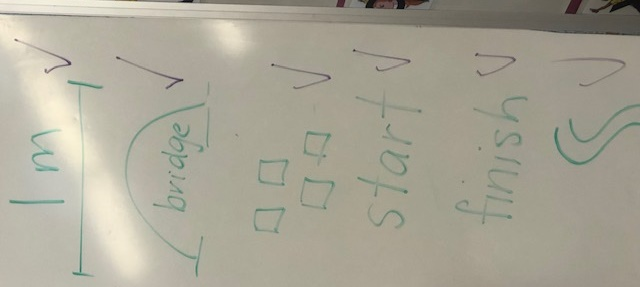 1 m
bridge
start
finish